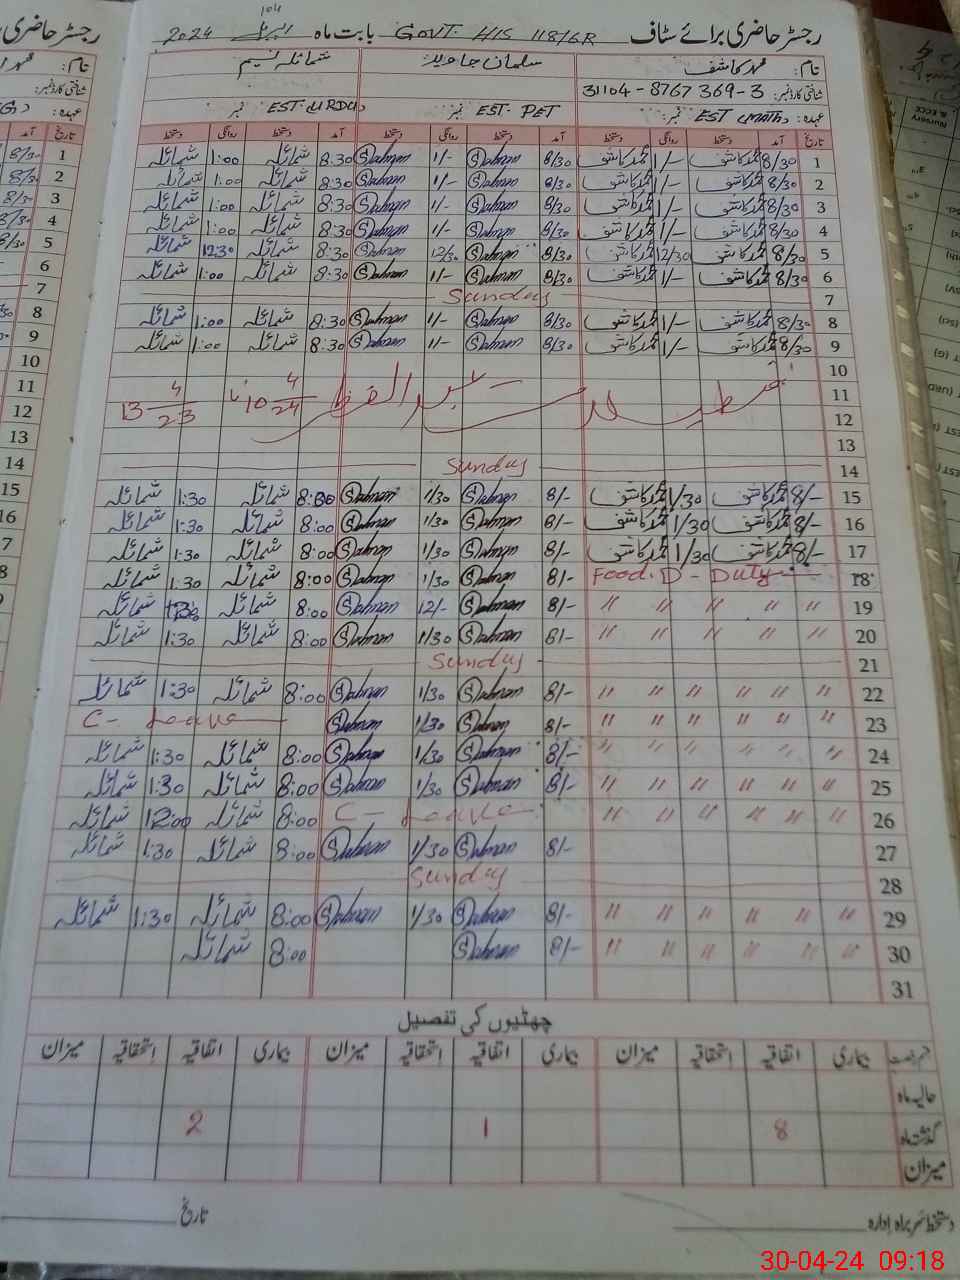 رجسٹر حاضری برائے سٹاف GOVT. HIS 118/6R بابت ماہ اپریل 2024
نام: محمد کاشف سلمان جاوید شمائلہ نسیم
شناختی کارڈ نمبر: 31104-8767369-3
عہدہ: EST (MATH) نمبر EST-PET نمبر EST-(URDU) نمبر
تاریخ آمد دستخط روانگی دستخط آمد دستخط روانگی دستخط آمد دستخط روانگی دستخط
1 8/30 محمد کاشف 1/- محمد کاشف 8/30 Salman 1/- Salman 8:30 شمائلہ 1:00 شمائلہ
2 8/30 محمد کاشف 1/- محمد کاشف 8/30 Salman 1/- Salman 8:30 شمائلہ 1:00 شمائلہ
3 8/30 محمد کاشف 1/- محمد کاشف 8/30 Salman 1/- Salman 8:30 شمائلہ 1:00 شمائلہ
4 8/30 محمد کاشف 1/- محمد کاشف 8/30 Salman 1/- Salman 8:30 شمائلہ 1:00 شمائلہ
5 8/30 محمد کاشف 12/30 محمد کاشف 8/30 Salman 12/30 Salman 8:30 شمائلہ 12:30 شمائلہ
6 8/30 محمد کاشف 1/- محمد کاشف 8/30 Salman 1/- Salman 8:30 شمائلہ 1:00 شمائلہ
7 Sunday
8 8/30 محمد کاشف 1/- محمد کاشف 8/30 Salman 1/- Salman 8:30 شمائلہ 1:00 شمائلہ
9 8/30 محمد کاشف 1/- محمد کاشف 8/30 Salman 1/- Salman 8:30 شمائلہ 1:00 شمائلہ
10
11 تعطیلات عید الفطر 10 4/24 تا 13 4/23
12
13
14 Sunday
15 8/- محمد کاشف 1/30 محمد کاشف 8/- Salman 1/30 Salman 8:00 شمائلہ 1:30 شمائلہ
16 8/- محمد کاشف 1/30 محمد کاشف 8/- Salman 1/30 Salman 8:00 شمائلہ 1:30 شمائلہ
17 8/- محمد کاشف 1/30 محمد کاشف 8/- Salman 1/30 Salman 8:00 شمائلہ 1:30 شمائلہ
18 Food.D - Duty 8/- Salman 1/30 Salman 8:00 شمائلہ 1:30 شمائلہ
19 " " " " " 8/- Salman 12/- Salman 8:00 شمائلہ شمائلہ
20 " " " " " 8/- Salman 1/30 Salman 8:00 شمائلہ 1:30 شمائلہ
21 Sunday
22 " " " " " " 8/- Salman 1/30 Salman 8:00 شمائلہ 1:30 شمائلہ
23 " " " " " " 8/- Salman 1/30 Salman C- Leave
24 " " " " " " 8/- Salman 1/30 Salman 8:00 شمائلہ 1:30 شمائلہ
25 " " " " " " 8/- Salman 1/30 Salman 8:00 شمائلہ 1:30 شمائلہ
26 " " " " " " C- Leave 8:00 شمائلہ 12:00 شمائلہ
27 8/- Salman 1/30 Salman 8:00 شمائلہ 1:30 شمائلہ
28 Sunday
29 " " " " " " 8/- Salman 1/30 Salman 8:00 شمائلہ 1:30 شمائلہ
30 " " " " " " 8/- Salman 8:00 شمائلہ
31
چھٹیوں کی تفصیل
بیماری اتفاقیہ استحقاقیہ میزان بیماری اتفاقیہ استحقاقیہ میزان بیماری اتفاقیہ استحقاقیہ میزان
حالیہ ماہ
گذشتہ ماہ 8 1 2
میزان
دستخط سربراہ ادارہ تاریخ
30-04-24 09:18